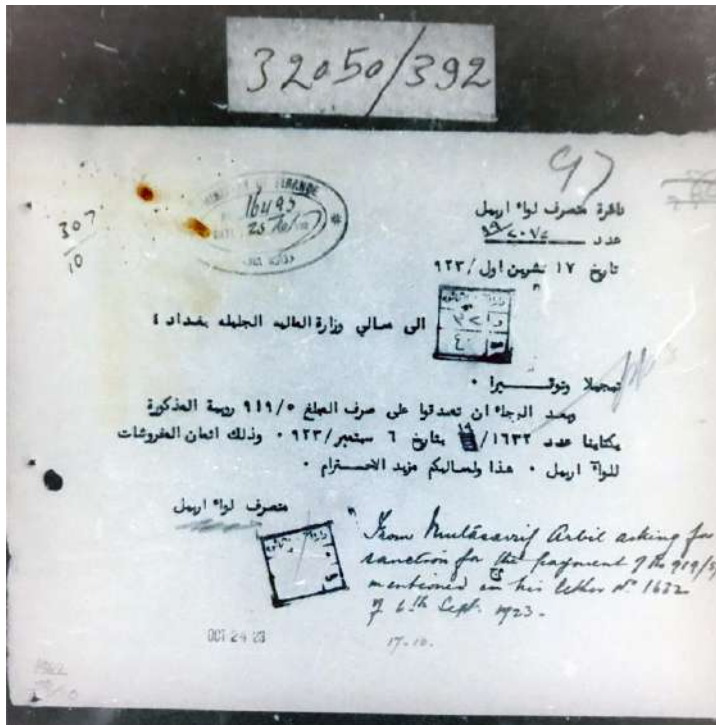 32050/392
97
MINISTRY OF FINANCE
16495
25/10/
307
10
دائرة متصرف لواء اربيل
عدد
تاريخ ١٧ تشرين اول/٩٢٣
الى معالي وزارة الماليه الجليله بغداد ٤
تبجيلا وتوقـــيرا ٠
وبعد الرجاء ان تصدقوا على صرف المبلغ ٩١٩/٥ روبية المذكورة
بكتابنا عدد ١٦٣٢/١٩ بتاريخ ٦ سبتمبر/٩٢٣ ٠ وذلك اثمان المفروشات
للواء اربيل ٠ هذا ولمعاليكم مزيد الاحـــترام ٠
متصرف لواء اربيل
From Mutasarrif Arbil asking for
sanction for the payment of Rs 919/5
mentioned in his letter No 1632
of 6th Sept. 1923.
17.10.
OCT 24 23